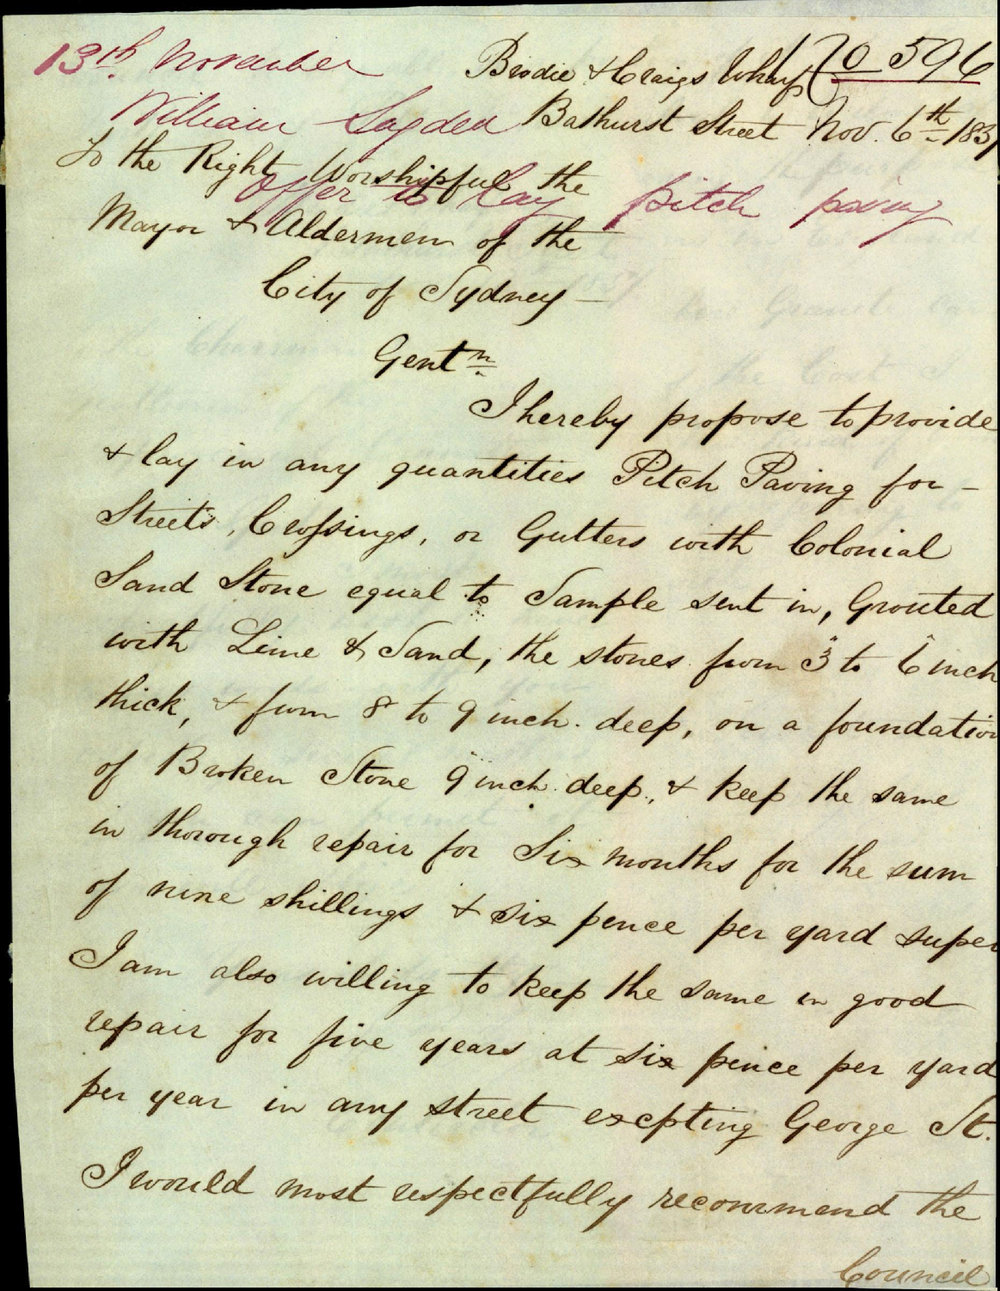 13th November
William Sagden
offer to lay pitch paving
70 596
Brodie & Craigs Wharf
Bathurst Street Nov. 6th 185
To the Right Worshipful the
Mayor & Aldermen of the
City of Sydney —
Gentn
I hereby propose to provide
& lay in any quantities Pitch Paving for —
Streets, Crossings, or Gutters with Colonial
Sand Stone equal to Sample sent in, Grouted
with Lime & Sand, the stones from 3 to 6 inch
thick, & from 8 to 9 inch deep, on a foundation
of Broken Stone 9 inch deep, & keep the same
in thorough repair for Six months for the sum
of nine shillings & six pence per yard super
I am also willing to keep the same in good
repair for five years at six pence per yard
per year in any street excpting George St.
I would most respectfully recommend the
Council